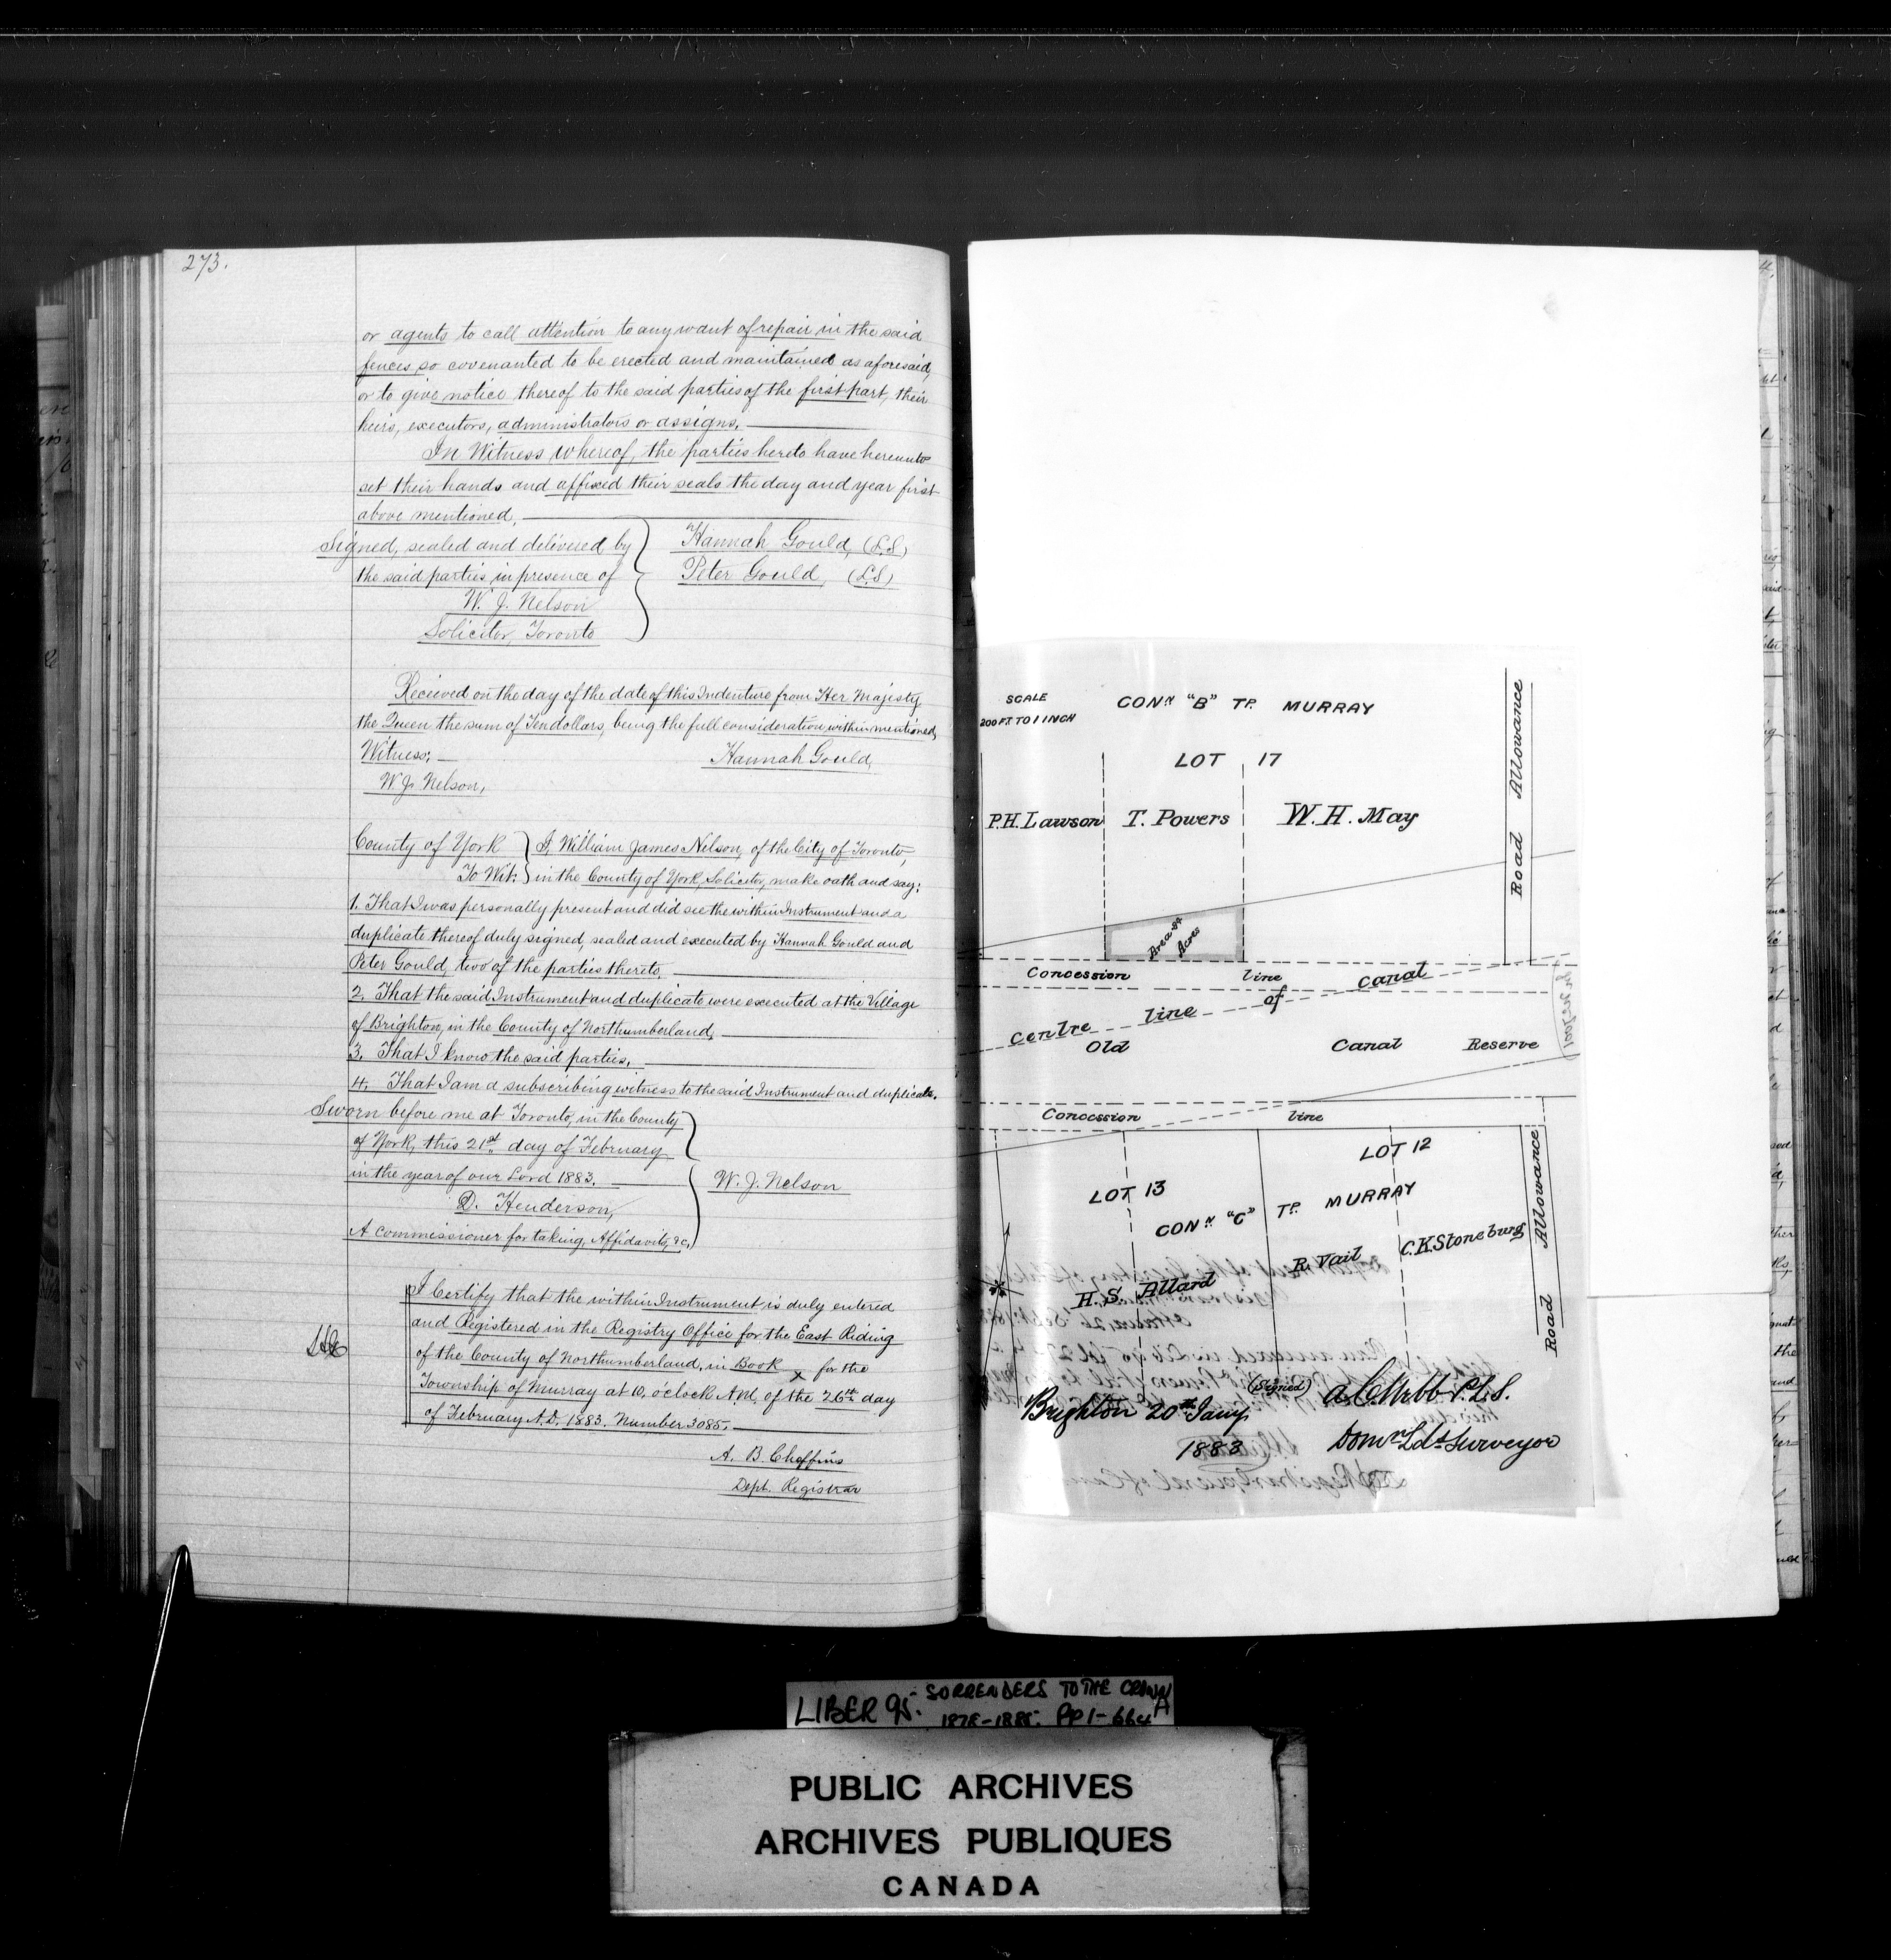 273.
or agents to call attention to any want of repair in the said
fences so covenanted to be erected and maintained as aforesaid,
or to give notice thereof to the said parties of the first part, their
heirs, executors, administrators or assigns.
In Witness whereof, the parties hereto have hereunto
set their hands and affixed their seals the day and year first
above mentioned.
Signed, sealed and delivered by
the said parties in presence of
W. J. Nelson
Solicitor, Toronto
Hannah Gould, (L.S.)
Peter Gould, (L.S.)
Received on the day of the date of this Indenture from Her Majesty
the Queen the sum of Ten dollars, being the full consideration within mentioned,
Witness:
W. J. Nelson,
Hannah Gould,
County of York
To Wit:
I, William James Nelson, of the City of Toronto,
in the County of York, Solicitor, make oath and say:
1. That I was personally present and did see the within Instrument and a
duplicate thereof duly signed, sealed and executed by Hannah Gould and
Peter Gould, two of the parties thereto.
2. That the said Instrument and duplicate were executed at the Village
of Brighton, in the County of Northumberland,
3. That I know the said parties.
4. That I am a subscribing witness to the said Instrument and duplicate.
Sworn before me at Toronto, in the County
of York, this 21st day of February
in the year of our Lord 1883.
D. Henderson,
A commissioner for taking, Affidavits, &c,
W. J. Nelson
I Certify that the within Instrument is duly entered
and Registered in the Registry Office for the East Riding
of the County of Northumberland, in Book for the
Township of Murray at 10, o'clock A.M. of the 26th day
of February A.D. 1883. Number 3085.
A. B. Cheffins
Dept. Registrar
SCALE
200 FT TO 1 INCH
CONN "B" TP. MURRAY
LOT 17
P.H. Lawson
T. Powers
W. H. May
Road Allowance
Area .84
Acres
Concession line
centre line of canal
Old Canal Reserve
Concession line
LOT 12
LOT 13
CONN "C" TP. MURRAY
H. S. Allard
R. Vail
C.K. Stoneburg
Road Allowance
Brighton 20th Jany
1883
(Signed) A. C. Webb P.L.S.
Domn Lds Surveyor
LIBER 95. SURRENDERS TO THE CROWN
1878-1885. PP 1-664A
PUBLIC ARCHIVES
ARCHIVES PUBLIQUES
CANADA